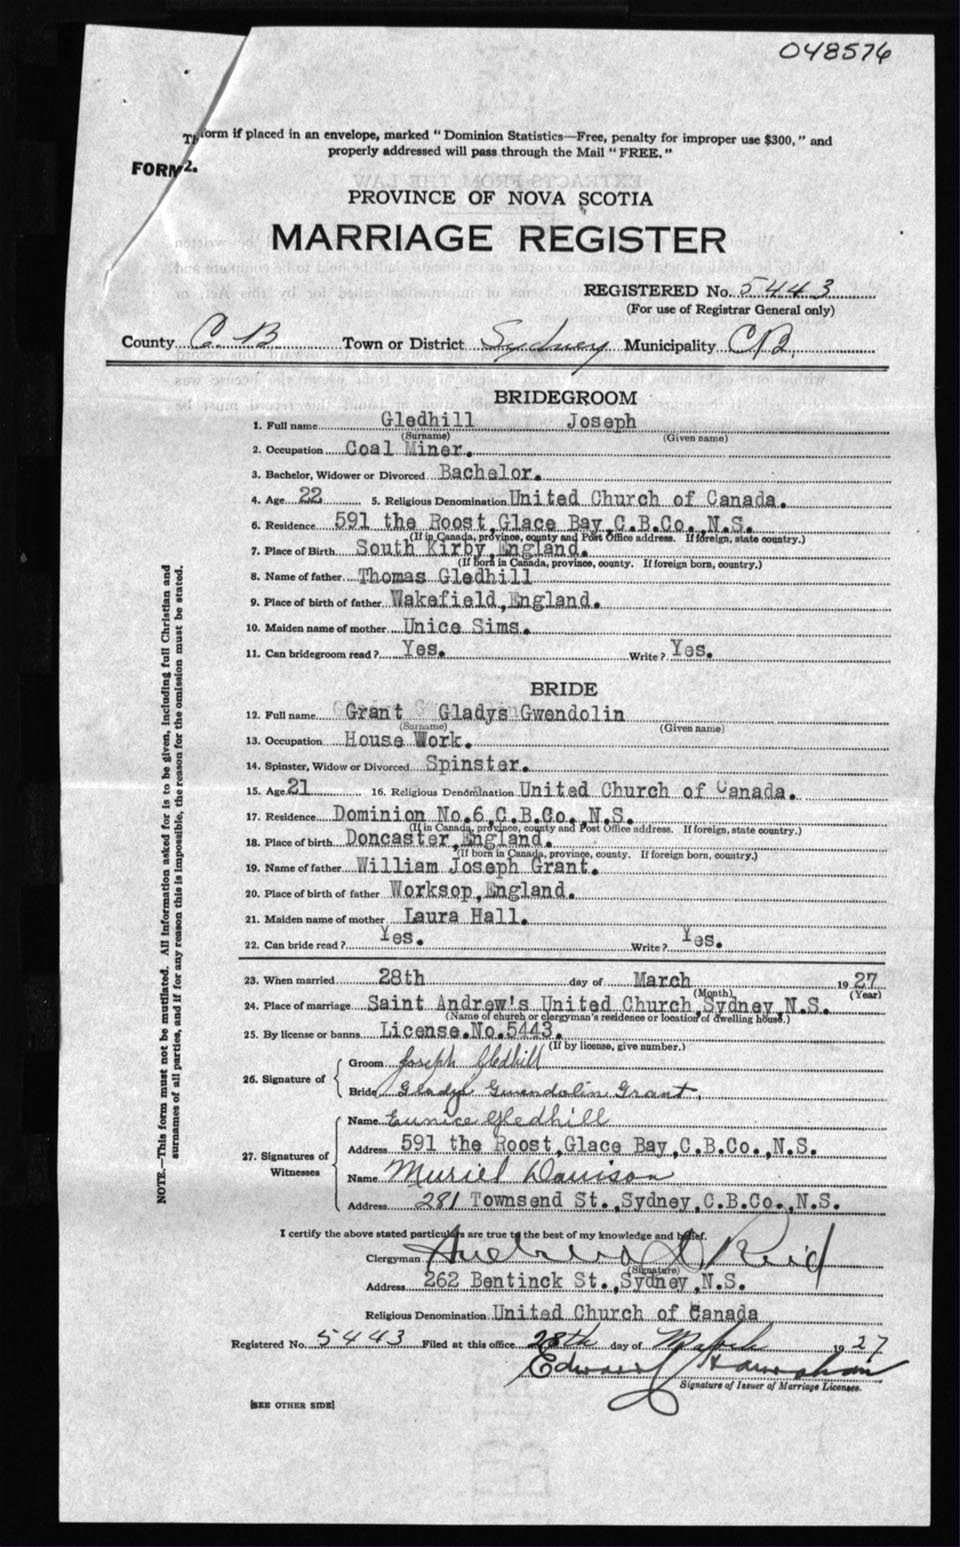 048576
Th form if placed in an envelope, marked "Dominion Statistics—Free, penalty for improper use $300," and
properly addressed will pass through the Mail "FREE."
FORM 2.
PROVINCE OF NOVA SCOTIA
MARRIAGE REGISTER
REGISTERED No. 5443
(For use of Registrar General only)
County C B Town or District Sydney Municipality C B.
BRIDEGROOM
1. Full name Gledhill Joseph
(Surname) (Given name)
2. Occupation Coal Miner.
3. Bachelor, Widower or Divorced Bachelor.
4. Age 22 5. Religious Denomination United Church of Canada.
6. Residence 591 the Roost, Glace Bay, C.B.Co., N.S.
(If in Canada, province, county and Post Office address. If foreign, state country.)
7. Place of Birth South Kirby, England.
(If born in Canada, province, county. If foreign born, country.)
8. Name of father Thomas Gledhill
9. Place of birth of father Wakefield, England.
10. Maiden name of mother Unice Sims.
11. Can bridegroom read? Yes. Write? Yes.
BRIDE
12. Full name Grant Gladys Gwendolin
(Surname) (Given name)
13. Occupation House Work.
14. Spinster, Widow or Divorced Spinster.
15. Age 21 16. Religious Denomination United Church of Canada.
17. Residence Dominion No.6, C.B.Co., N.S.
(If in Canada, province, county and Post Office address. If foreign, state country.)
18. Place of birth Doncaster, England.
(If born in Canada, province, county. If foreign born, country.)
19. Name of father William Joseph Grant.
20. Place of birth of father Worksop, England.
21. Maiden name of mother Laura Hall.
22. Can bride read? Yes. Write? Yes.
23. When married 28th day of March 1927
(Month) (Year)
24. Place of marriage Saint Andrew's United Church, Sydney, N.S.
(Name of church or clergyman's residence or location of dwelling house.)
25. By license or banns License.No.5443.
(If by license, give number.)
26. Signature of
Groom Joseph Gledhill
Bride Gladys Gwendolin Grant.
27. Signatures of Witnesses
Name Eunice Gledhill
Address 591 the Roost, Glace Bay, C.B.Co., N.S.
Name Muriel Davison
Address 281 Townsend St., Sydney, C.B.Co., N.S.
I certify the above stated particulars are true to the best of my knowledge and belief.
Clergyman Reid
(Signature)
Address 262 Bentinck St., Sydney, N.S.
Religious Denomination United Church of Canada
Registered No. 5443 Filed at this office 28th day of March 1927
Edward
Signature of Issuer of Marriage Licenses.
[SEE OTHER SIDE]
NOTE.—This form must not be mutilated. All information asked for is to be given, including full Christian and
surnames of all parties, and if for any reason this is impossible, the reason for the omission must be stated.